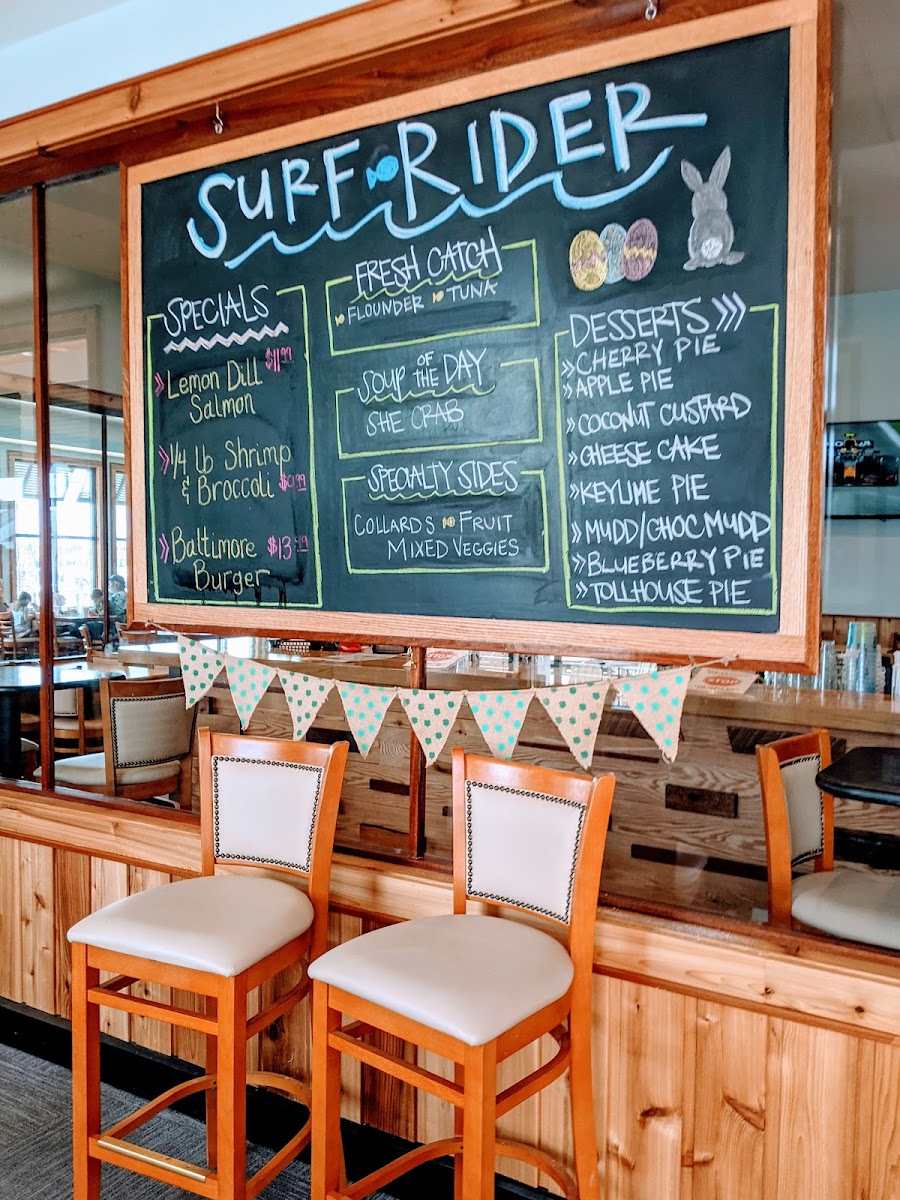 SURF RIDER
SPECIALS
$11.99
Lemon Dill
Salmon
1/4 lb Shrimp
& Broccoli
Baltimore
Burger
FRESH CATCH
FLOUNDER TUNA
SOUP OF THE DAY
SHE CRAB
SPECIALTY SIDES
COLLARDS FRUIT
MIXED VEGGIES
DESSERTS >>>
>> CHERRY PIE
>> APPLE PIE
>> COCONUT CUSTARD
>> CHEESE CAKE
>> KEYLIME PIE
>> MUDD/CHOC MUDD
>> BLUEBERRY PIE
>> TOLLHOUSE PIE
STOP